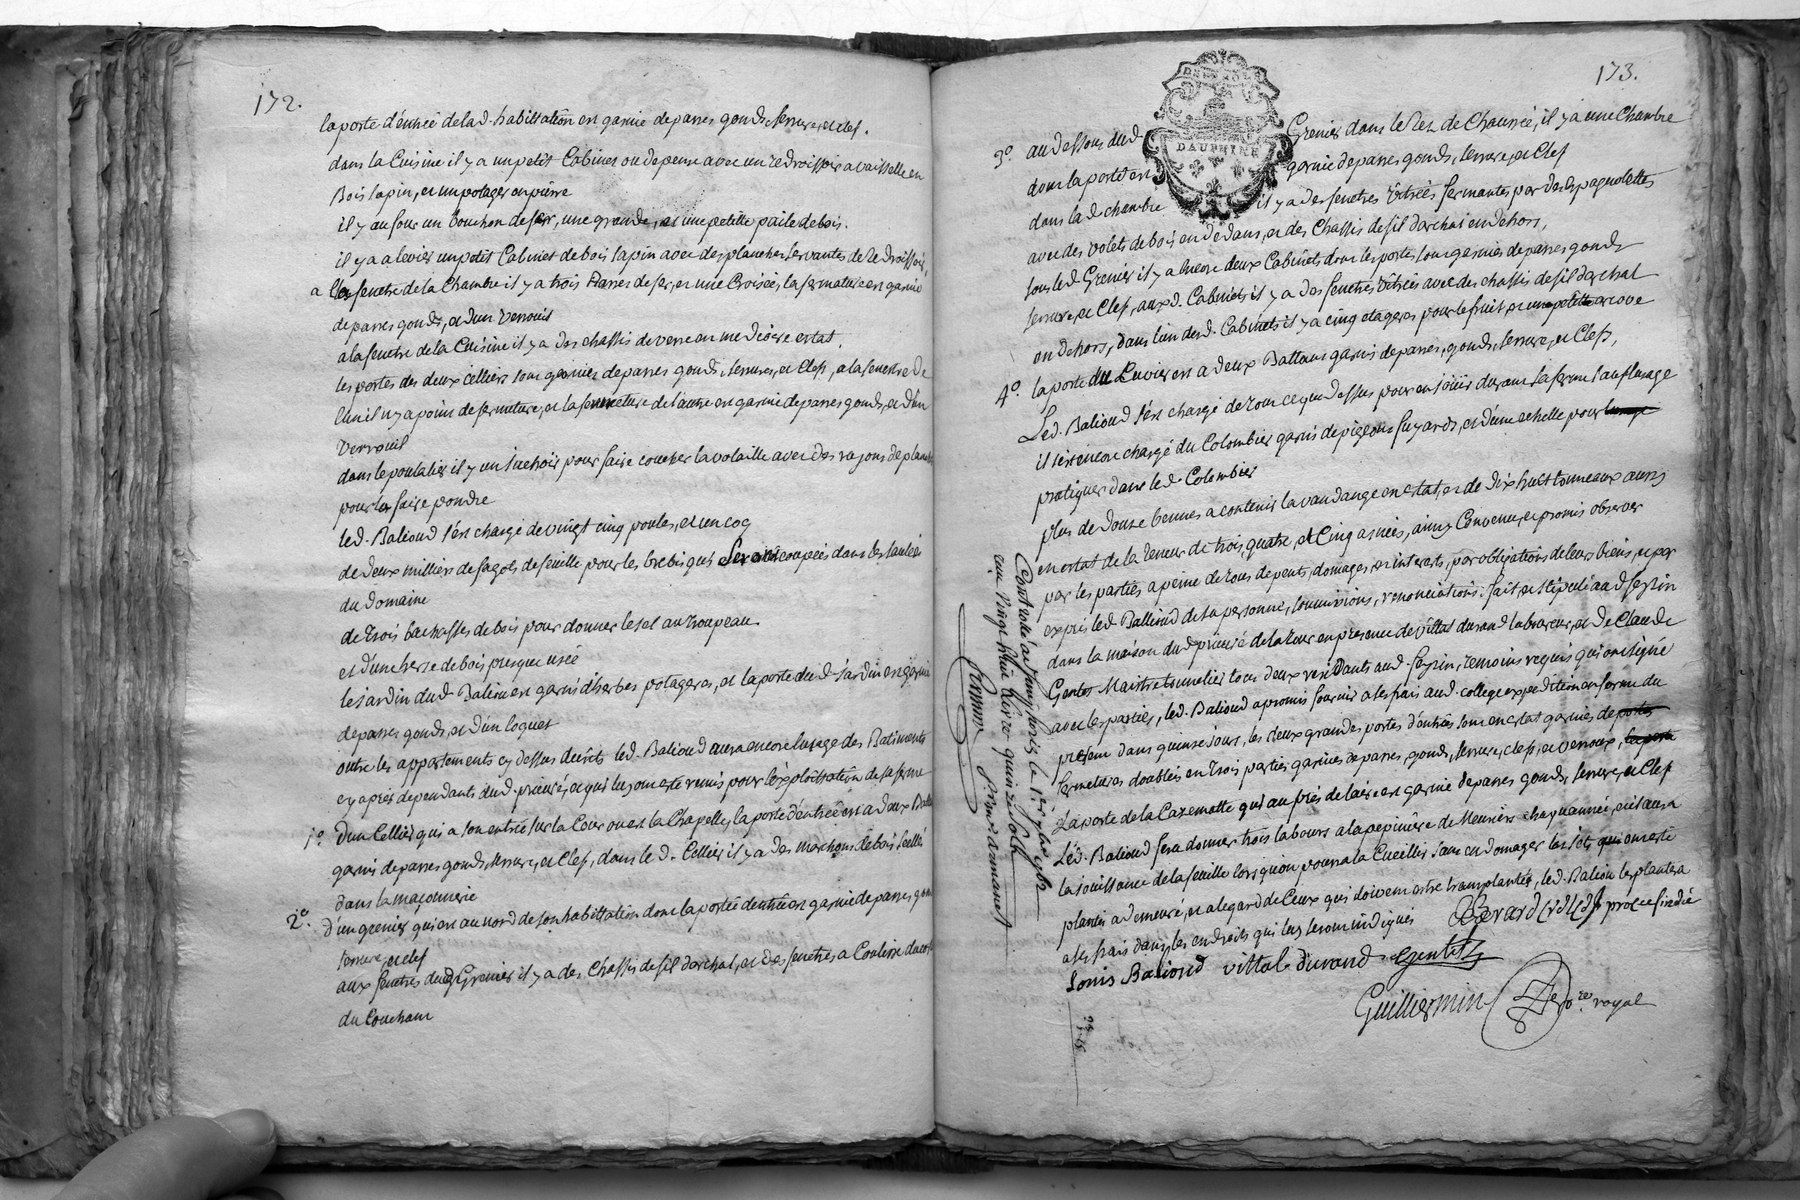 172.
la porte d'éntreé de lad. habittation en garnie de parres gonds, serrure, et clef.
dans la Cuisine il y a un petit Cabinet ou depense avec un redroissoir a vaisselle en
Bois sapin, et un potager en pierre
il y a au four un bouchon de fer, une grande, et une petitte paile de bois.
il y a a levier un petit Cabinet de bois sapin avec des planches servantes de redroissoir,
a la fenetre de la Chambre il y a trois Barres de fer, et une Croiseé, la fermature en garnie
de parres gonds, et d'un Verrouil
a la fenetre de la Cuisine il y a des chassis de verre en mediocre estat.
les portes des deux celliers sont garnies de parres gonds, serrures, et Clefs, a la fenestre de
l'un il n'y a point de fermeture, et la fermeture de l'autre en garnie de parres gonds, et d'un
Verrouil
dans le poulalier il y a un Juchoir pour faire coucher la volaille avec des rayons de planche
pour les faire pondre
led. Balioud s'ést chargé de vingt cinq poules, et un coq
de deux milliers de fagots de feuille pour les brebis qui Seront coupeés dans les sauleés
du domaine
de trois bachasses de bois pour donner le sel au troupeau
et d'une herse de bois presque useé
le jardin dud. Balioud en garni d'herbes potageres, et la porte dud. jardin en garnie
de parres gonds, et d'un loquet
outre les appartements cy dessus decrits led. Balioud aura encore l'usage des Batiments
cy aprés dependants dud. prieuré, et qui luy ont eté remis pour l'éxploittation de sa ferme
1°. D'un Cellier qui a son entreé sur la Cour ou est la Chapelle, la porte d'entreé est a deux Battans
garnis de parres gonds, serrure, et Clef, dans le d. Cellier il y a des marchons de bois scellés
dans la maçonnerie
2°. d'un grenier qui est au nord de son habittation dont la porte d'entreé en garnie de parres gonds
serrure, et clef
aux fenetres dud. Grenier il y a des Chassis de fil d'archat, et des fenetres a Coulisse du costé
du Couchant
173.
DAUPHINÉ
3°. au dessous dud. Grenier dans le Rez de Chausseé, il y a une Chambre
dont la porte en garnie de parres gonds, serrure, et Clef
dans lad. chambre il y a des fenetres vitreés fermantes par des Espagnolettes
avec des volets de bois en dedans, et des Chassis de fil d'archat en dehors,
sous led. Grenier il y a encore deux Cabinets dont les portes sont garnies de parres gonds
serrure, et Clef, auxd. Cabinets il y a des fenetres vitreés avec des chassis de fil d'archat
en dehors, dans l'un desd. Cabinets il y a cinq etageres pour le fruit et une petitte arcove
4°. la porte du Cuvier est a deux Battans garnis de parres, gonds, serrure, et Clefs,
Led. Balioud s'ést chargé de tout ce que dessus pour en joüir durant sa ferme sauf l'usage
il s'ést encore chargé du Colombier garni de pigeons fuyards, et d'une echelle pour
pratiquer dans led. Colombier
plus de douse bennes a contenir la vandange en estat, et de dix huit tonneaux aussy
en estat de la teneur de trois, quatre, et Cinq asneés, ainsy Convenu, et promis observer
par les parties a peine de tous depents, domages, et interests, par obligations de leurs biens, et par
exprés led. Ballioud de sa personne, soumissions, renonciations. fait, et stipulé aud. feyzin
dans la maison dud. prieuré de la tour en presence de Vittal durand laboureur, et de Claude
Gentet Maistre tonnelier tous deux residants aud. feyzin, temoins requis qui ont signé
avec les parties, led. Balioud a promis fournir a ses frais aud. college expedition en forme du
present dans quinse jours, les deux grandes portes d'entreés sont en estat garnies de
fermetures doubles en trois parties garnies de parres, gonds, serrure, clefs, et verroux,
La porte de la Casematte qui au prés de l'aire est garnie de parres gonds, serrure, et Clef
Led. Balioud fera donner trois labours a la pepiniere de Meuriers chaque anneé, et il aura
la jouissance de la feuille lors qu'on pourra la Cueillir sans endomager les jets qui ont esté
plantés a demeure, et a legard de Ceux qui doivent estre transplantés, led. Balioud les plantera
a ses frais dans les endroits qui luy seront indiqués Berard proc. sindic
Louis Balioud vittal durand Gentet
Guilliermin no.re royal
Controlé a
cin Vingt huit livres quinze sols